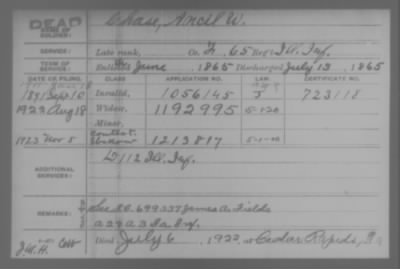 DEAD
NAME OF SOLDIER:
Chase, Ancil W.
SERVICE:
Late rank, Co. F, 65 Reg't Ill. Inf.
TERM OF SERVICE:
Enlisted June 1865 Discharged July 13, 1865
DATE OF FILING. CLASS APPLICATION NO. LAW CERTIFICATE NO.
1891 Sept 10 Invalid, 1056145 J 723118
1922 Aug 18 Widow, 1192995
Minor,
1923 Nov 5 Contest. Widow 1213817
ADDITIONAL SERVICES:
D 112 Ill. Inf.
REMARKS:
See 699337 James A. Fields
Died July 6 1922 at Cedar Rapids, Ia
J.W.H.